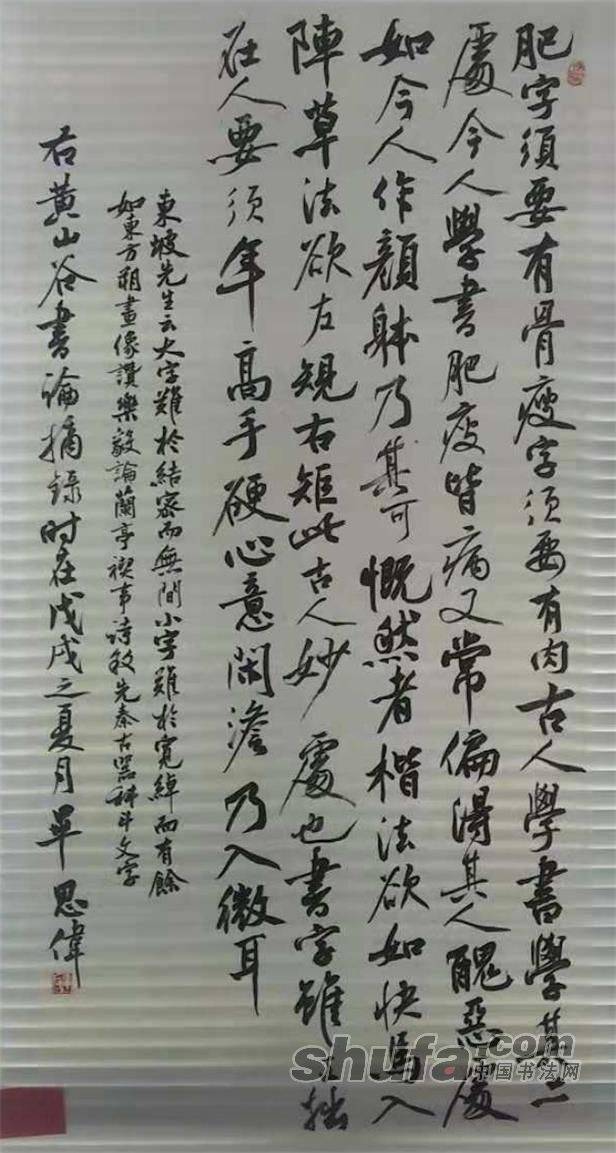 肥字須要有骨瘦字須要有肉古人學書學其二
處今人學書肥瘦皆病又常偏得其人醜惡處
如今人作顔躰乃其可慨然者楷法欲如快馬入
陣草法欲左規右矩此古人妙處也書字雖工拙
在人要須年高手硬心意閑澹乃入微耳
東坡先生云大字難於結密而無間小字難於寬綽而有餘
如東方朔畫像讚樂毅論蘭亭禊事詩敘先秦古器科斗文字
右黄山谷書論摘錄时在戊戌之夏月單思偉
shufa.com
中国书法网